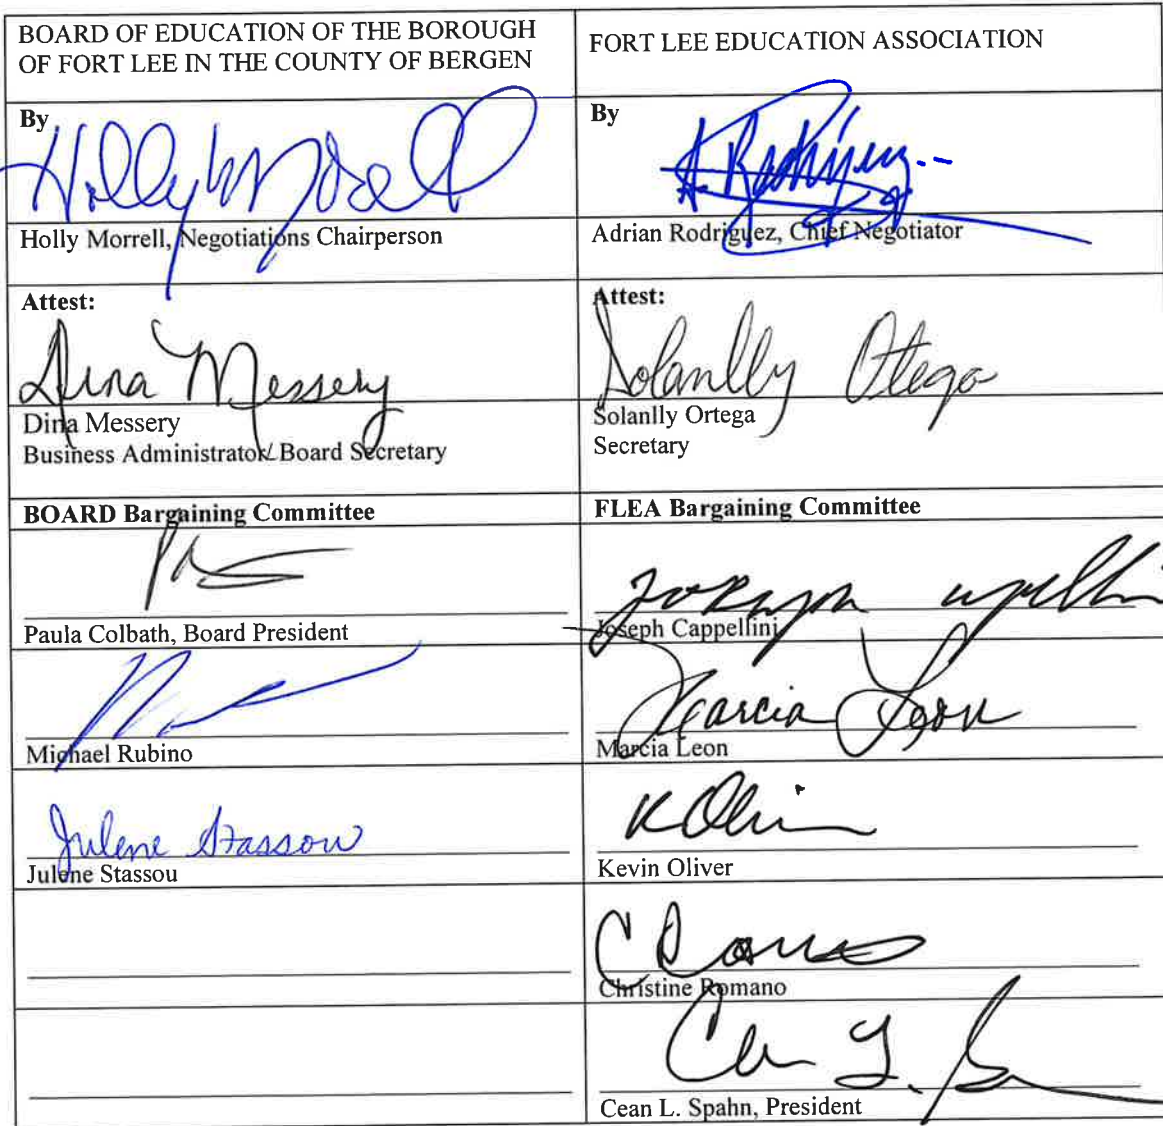 BOARD OF EDUCATION OF THE BOROUGH
OF FORT LEE IN THE COUNTY OF BERGEN
FORT LEE EDUCATION ASSOCIATION
By
Holly Morrell
Holly Morrell, Negotiations Chairperson
By
A. Rodriguez
Adrian Rodriguez, Chief Negotiator
Attest:
Dina Messery
Dina Messery
Business Administrator/ Board Secretary
Attest:
Solanlly Ortega
Solanlly Ortega
Secretary
BOARD Bargaining Committee
FLEA Bargaining Committee
Paula Colbath, Board President
Joseph Cappellini
Joseph Cappellini
Michael Rubino
Marcia Leon
Marcia Leon
Julene Stassou
Julene Stassou
K Oliver
Kevin Oliver
C Romano
Christine Romano
Cean L. Spahn, President